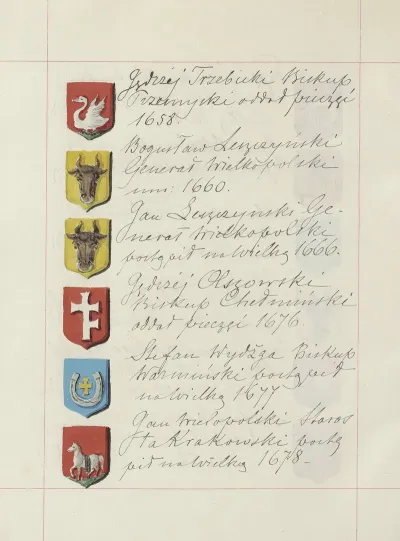 Jędrzej Trzebicki Biskup
Przemyski oddał pieczęć
1658.
Bogusław Leszczyński
Generał Wielkopolski
um: 1660.
Jan Leszczynski Ge-
nerał Wielkopolski
postąpił na Wielką 1666.
Jędrzej Olszowski
Biskup Chełmiński
oddał pieczęć 1676.
Stefan Wydżga Biskup
Warmiński postąpił
na Wielką 1677
Jan Wielopolski Staros
ta Krakowski postą
pił na Wielką 1678.